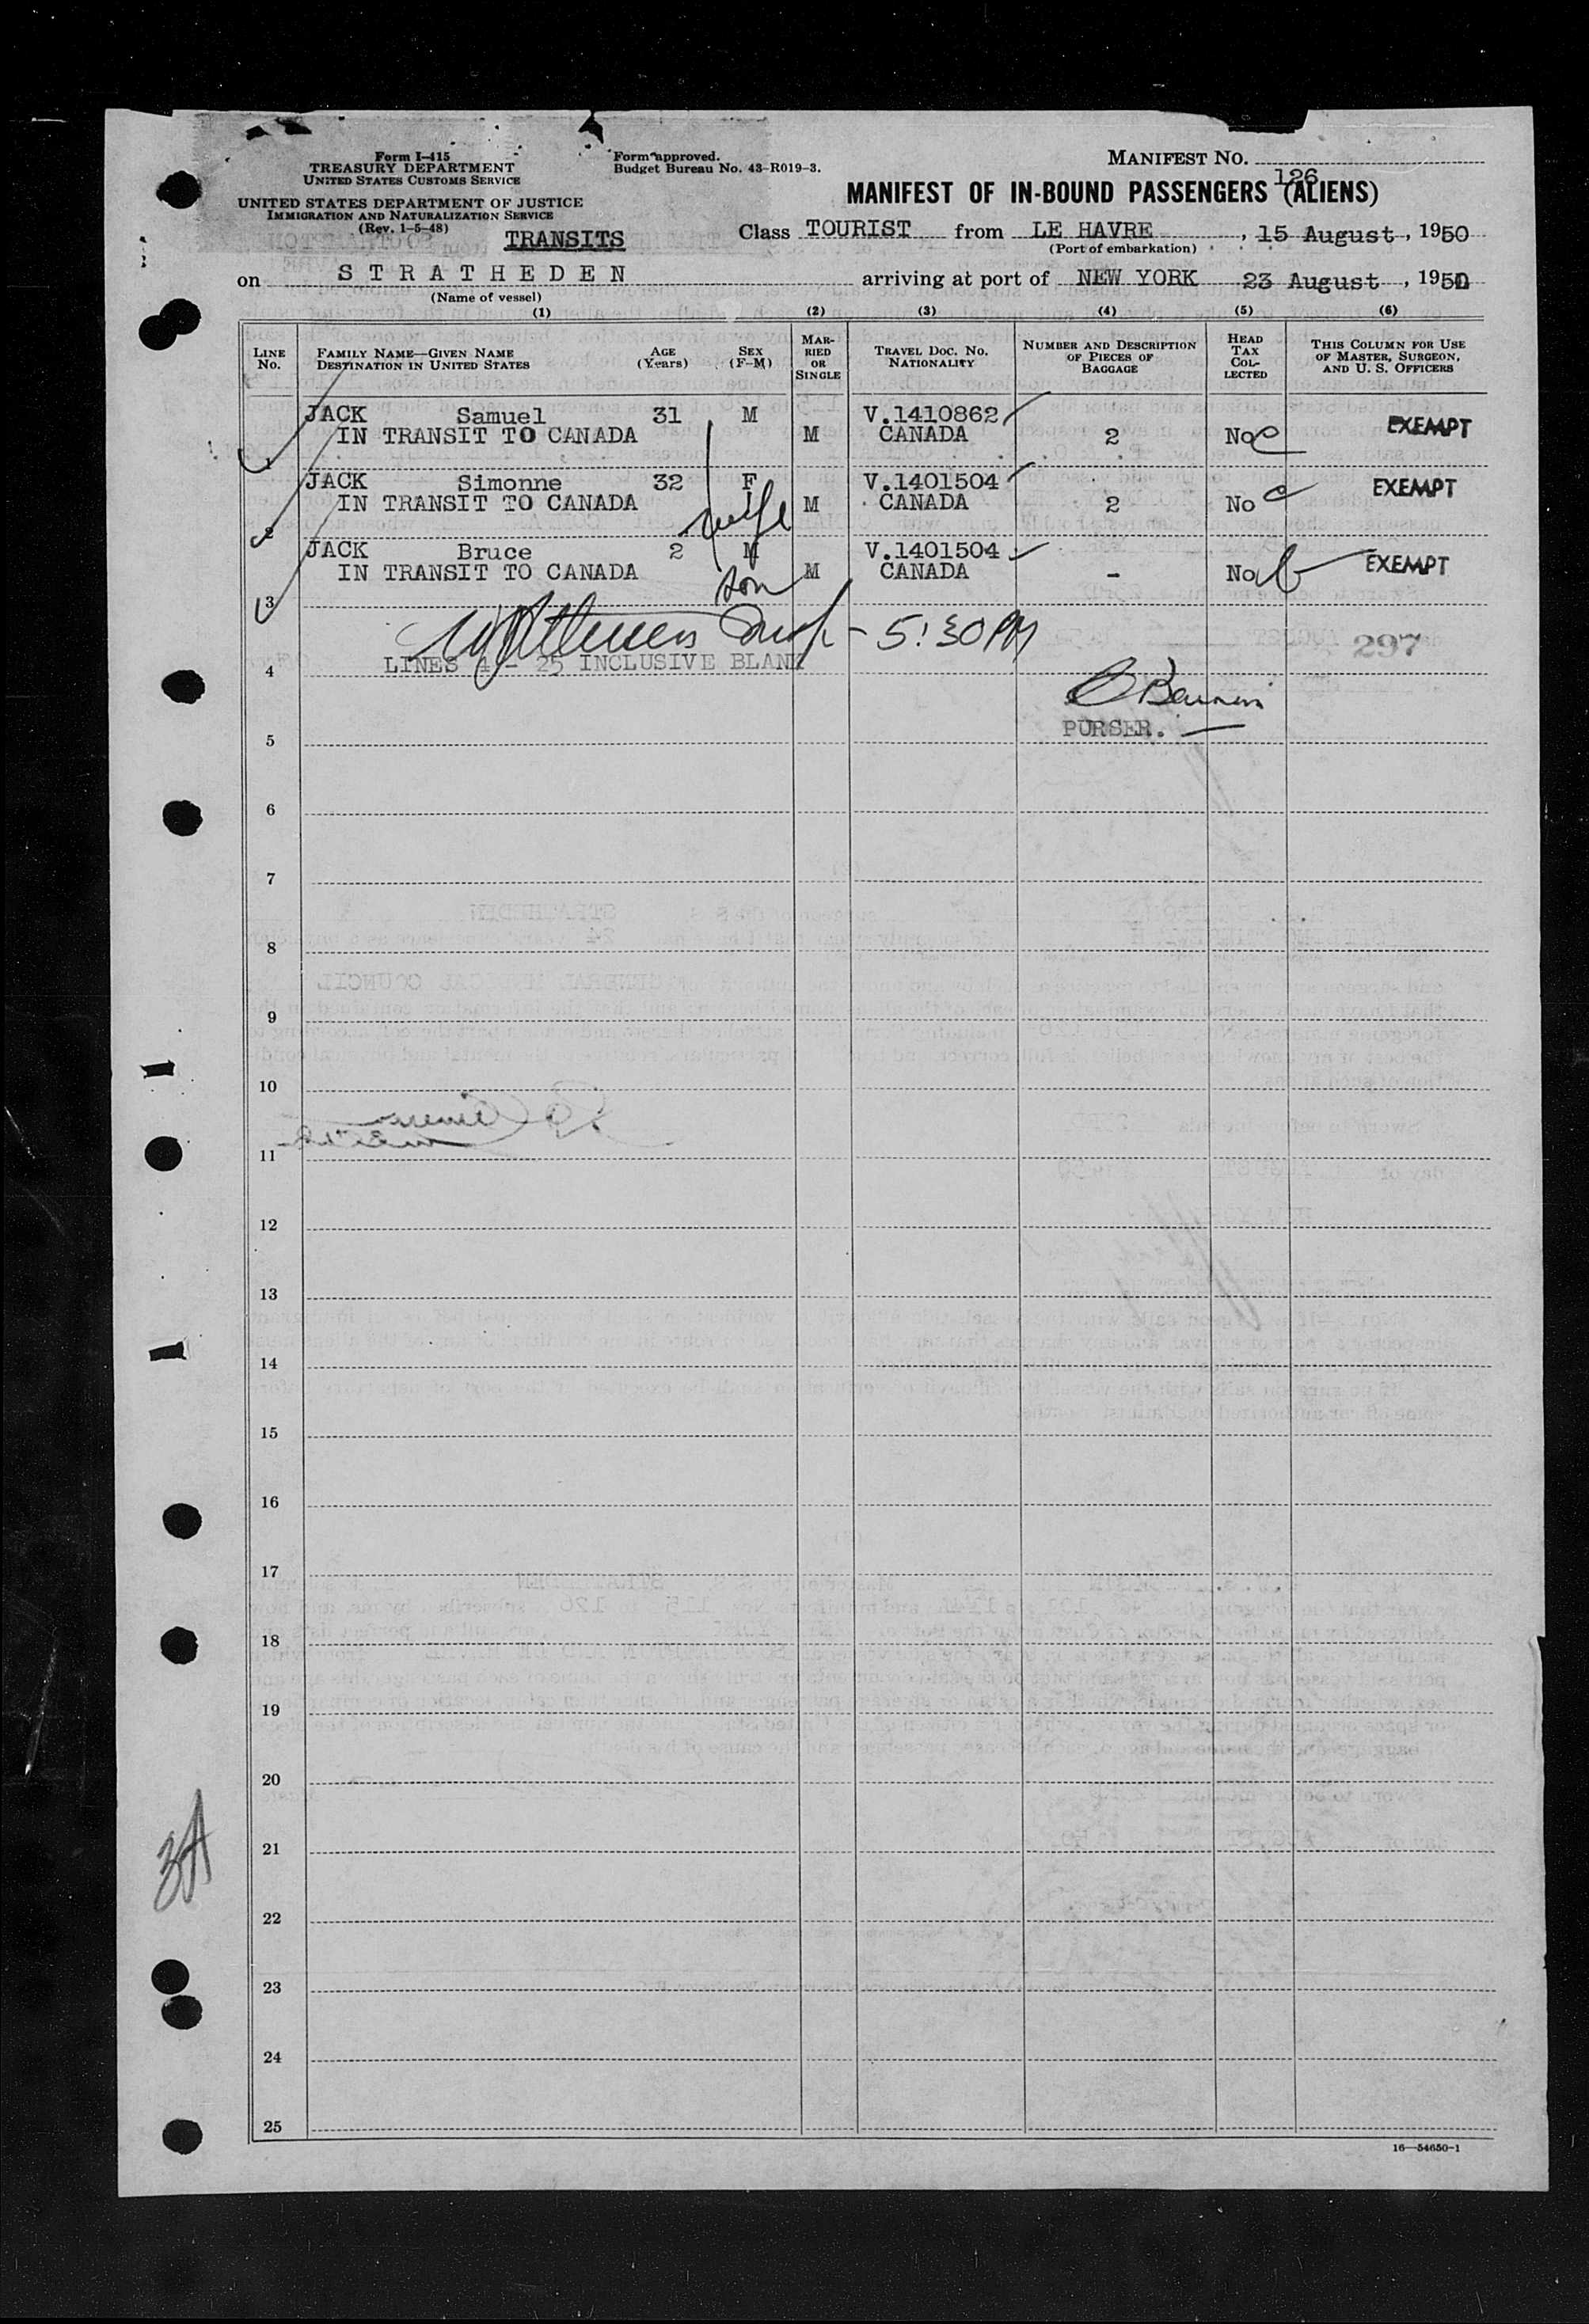 Form I-415
TREASURY DEPARTMENT
UNITED STATES CUSTOMS SERVICE
UNITED STATES DEPARTMENT OF JUSTICE
IMMIGRATION AND NATURALIZATION SERVICE
(Rev. 1-5-48)
Form approved.
Budget Bureau No. 43-R019-3.
MANIFEST NO.
126
MANIFEST OF IN-BOUND PASSENGERS (ALIENS)
TRANSITS
Class TOURIST from LE HAVRE, 15 August, 1950
(Port of embarkation)
on STRATHEDEN arriving at port of NEW YORK 23 August, 1950
(Name of vessel)
(1) (2) (3) (4) (5) (6)
LINE No. FAMILY NAME—GIVEN NAME DESTINATION IN UNITED STATES AGE (Years) SEX (F-M) MARRIED OR SINGLE TRAVEL DOC. NO. NATIONALITY NUMBER AND DESCRIPTION OF PIECES OF BAGGAGE HEAD TAX COLLECTED THIS COLUMN FOR USE OF MASTER, SURGEON, AND U. S. OFFICERS
JACK Samuel 31 M V.1410862 EXEMPT
IN TRANSIT TO CANADA M CANADA 2 No
1
JACK Simonne 32 F V.1401504 EXEMPT
IN TRANSIT TO CANADA wife M CANADA 2 No
2
JACK Bruce 2 M V.1401504 EXEMPT
IN TRANSIT TO CANADA son M CANADA - No
3
5:30 PM
297
LINES 4 - 25 INCLUSIVE BLANK
4
PURSER.
5
6
7
8
9
10
11
12
13
14
15
16
17
18
19
20
21
3A
22
23
24
25
16—54650-1